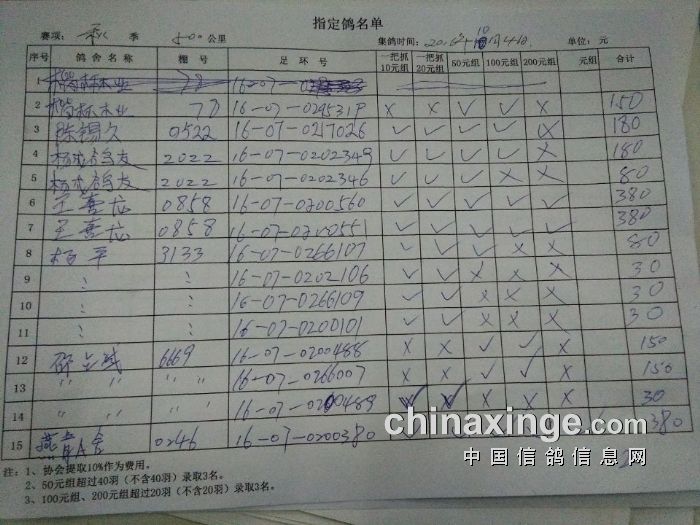 指定鸽名单
赛项： 秋 季 500 公里 集鸽时间： 单位： 元
序号 鸽舍名称 棚号 足环号 一把抓10元组 一把抓20元组 50元组 100元组 200元组 元组 合计
1 78 16-07-
2 林业 78 16-07-0294531 X X ✓ ✓ X 150
3 陈锡久 0522 16-07-0217026 ✓ ✓ ✓ ✓ X 180
4 鸽友 2022 16-07-0202349 ✓ ✓ ✓ ✓ X 180
5 鸽友 2022 16-07-0202346 ✓ ✓ ✓ X X 80
6 王喜龙 0858 16-07-0200560 ✓ ✓ ✓ ✓ ✓ 380
7 王喜龙 0858 ✓ ✓ ✓ ✓ ✓ 380
8 杨平 3133 16-07-0266107 ✓ ✓ ✓ X X 80
9 : : 16-07-0202106 ✓ ✓ X X X 30
10 : : 16-07-0266109 ✓ ✓ X X X 30
11 : : 16-07-0200101 ✓ ✓ X X X 30
12 6669 16-07-0200488 X X ✓ ✓ X 150
13 〃 〃 〃 〃 16-07-0266007 X X ✓ ✓ X 150
14 〃 〃 〃 〃 16-07-0200489 ✓ ✓ X X X 30
15 0246 16-07-0200380 ✓ ✓ 380
注：1、协会提取10%作为费用。
2、50元组超过40羽（不含40羽）录取3名。
3、100元组、200元组超过20羽（不含20羽）录取3名。
chinaxinge.com
中国信鸽信息网